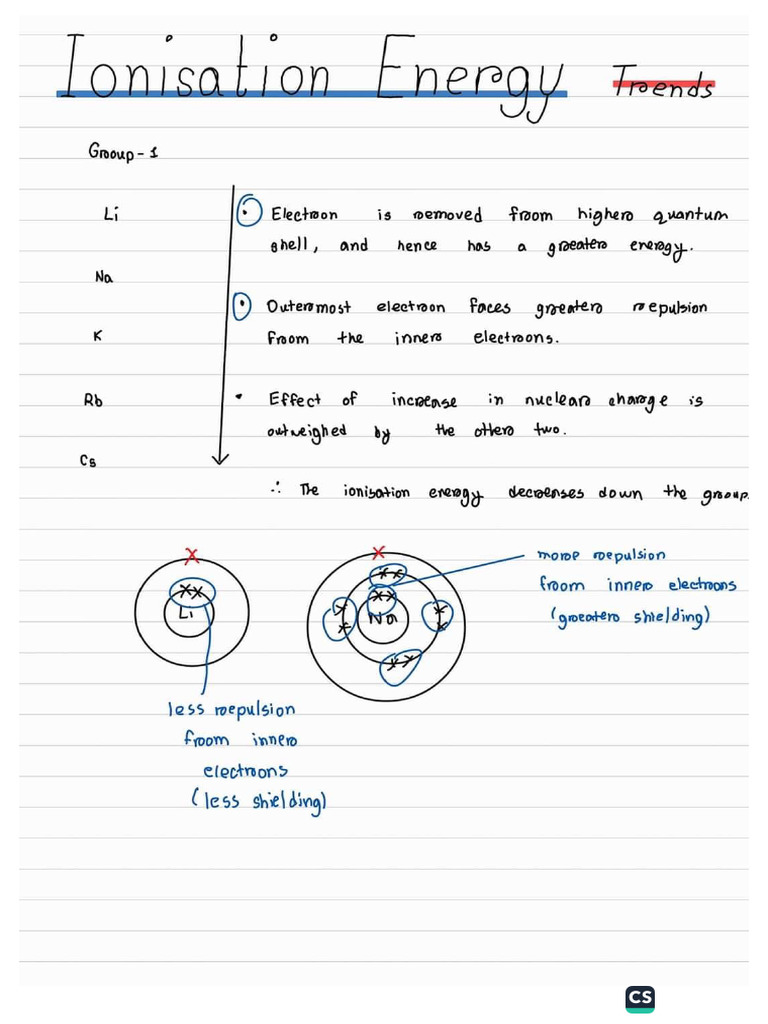 Ionisation Energy Trends
Group-1
Li
Electron is removed from higher quantum
shell, and hence has a greater energy.
Na
Outermost electron faces greater repulsion
from the inner electrons.
K
Rb
• Effect of increase in nuclear charge is
outweighed by the other two.
Cs
∴ The ionisation energy decreases down the group.
x
xx
Li
less repulsion
from inner
electrons
(less shielding)
x
xx
xx
Na
x
x
x
x
xx
more repulsion
from inner electrons
(greater shielding)
CS